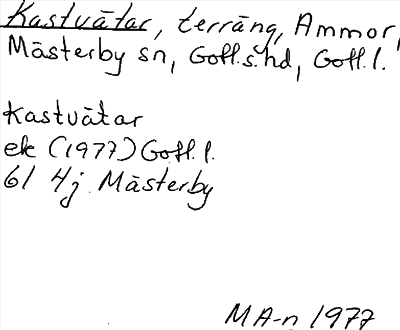 Kastvätar, terräng, Ammor,
Mästerby sn, Gotl.s.hd, Gotl. l.
Kastvätar
ek (1977) Gotl. l.
6I 4j Mästerby
MA-n 1977